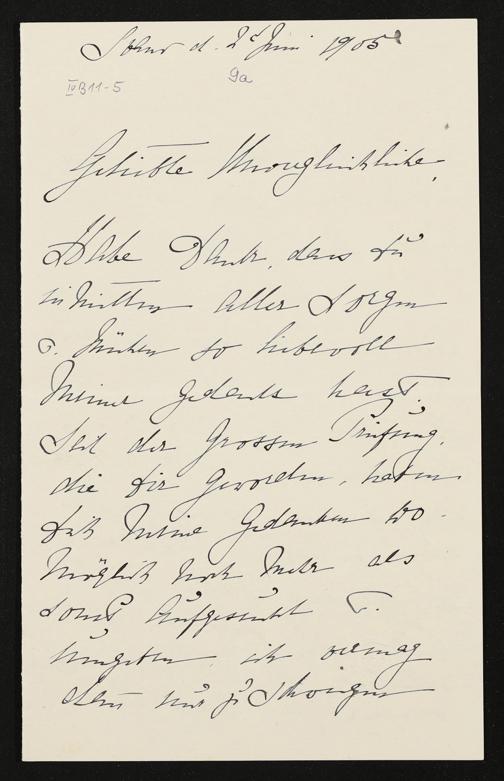 d. 2ᵗ Juni 1905
IV B 11-5
9a
Geliebte Unvergleichliche,
Habe Dank, dass Du
inmitten aller Sorgen
u. Mühen so liebevoll
Meiner gedacht hast.
Seit der grossen Prüfung,
die Dir geworden, haben
Dich meine Gedanken wo-
möglich noch mehr als
sonst aufgesucht u.
umgeben, ich vermag
nur zu Schweigen